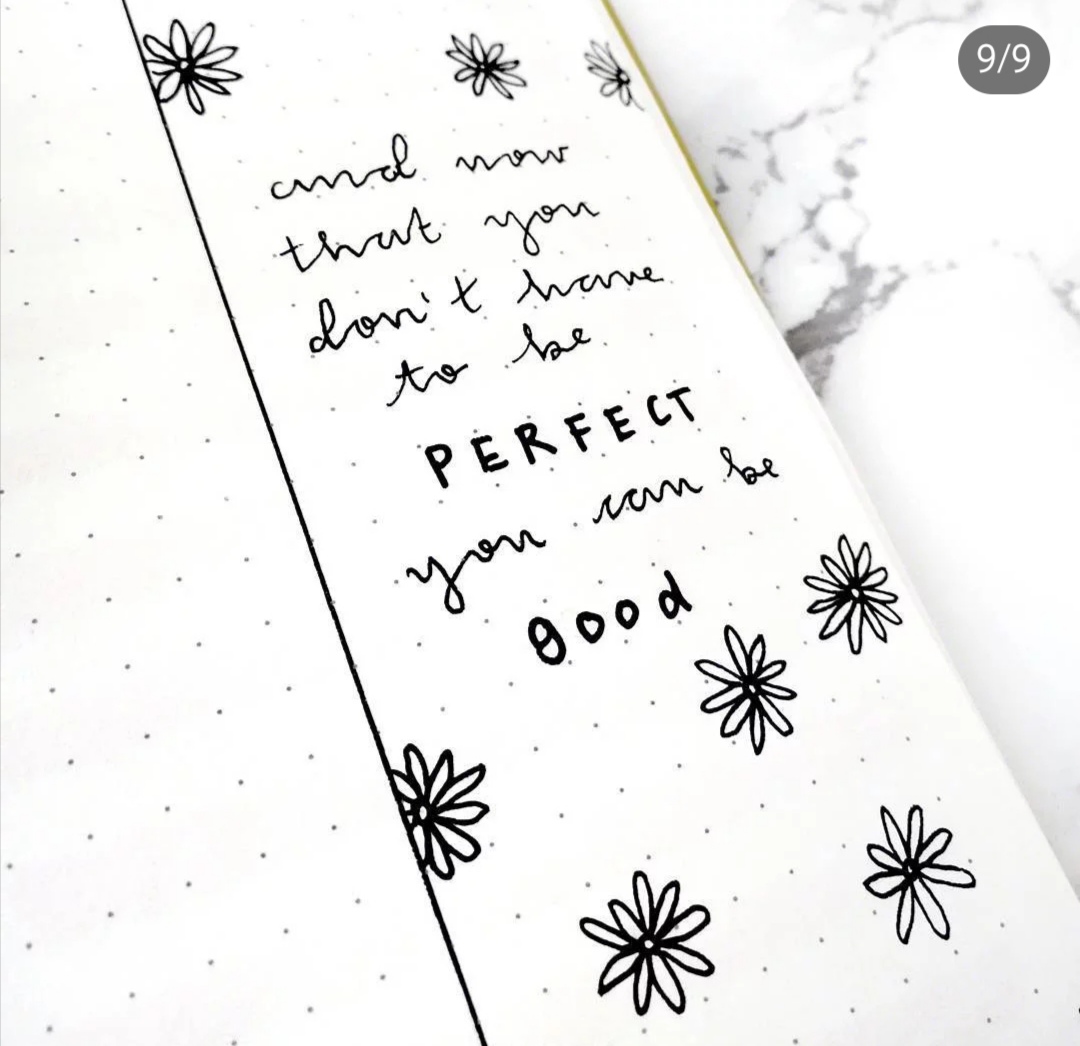 9/9
and now
that you
don't have
to be
PERFECT
you can be
good